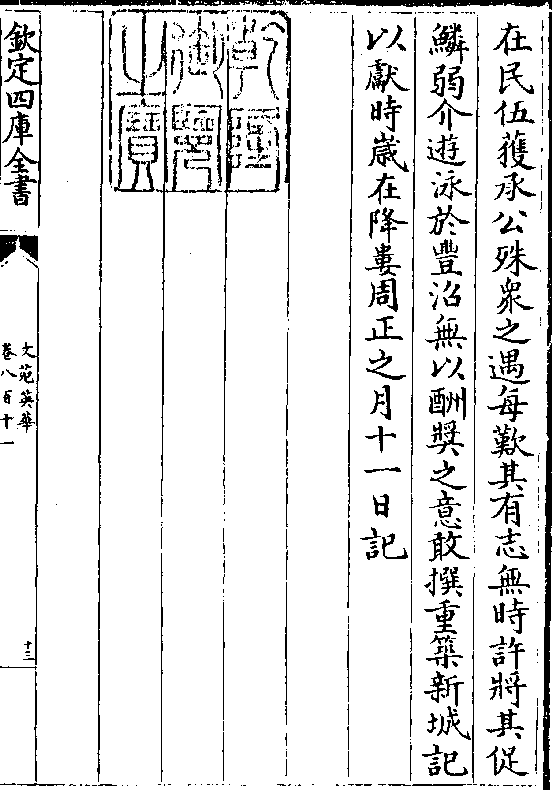 在民伍獲承公殊衆之遇每歎其有志無時許將其促
鱗弱介遊泳於豐沼無以酬奬之意敢撰重築新城記
以獻時歳在降婁周正之月十一日記
乾隆
御覽
之寶
欽定四庫全書
文苑英華
卷八百十一
十三